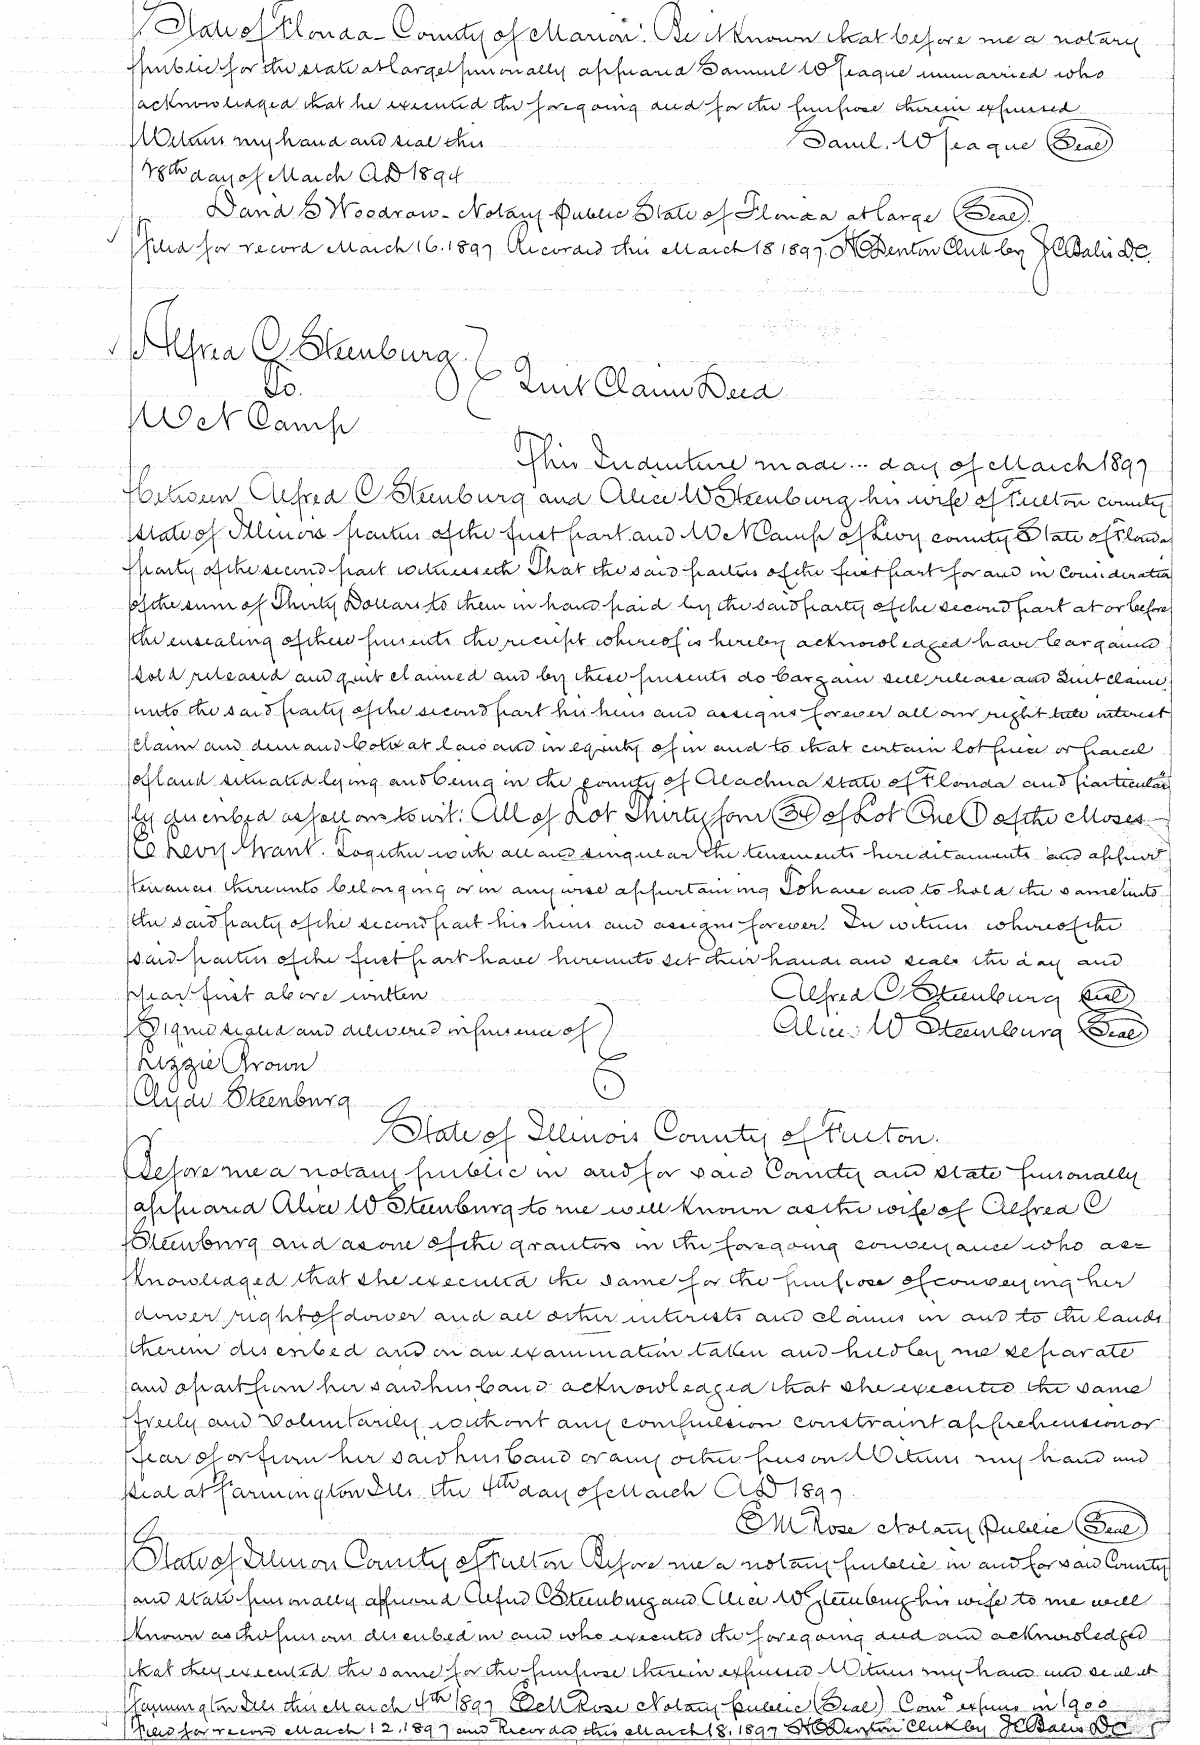 State of Florida - County of Marion: Be it Known that before me a notary
public for the state at large personally appeared Samuel W Teague unmarried who
acknowledged that he executed the foregoing deed for the purpose therein expressed
Witness my hand and seal this Saml. W Teague (Seal)
28th day of March AD 1894
David S Woodrow - Notary Public State of Florida at large (Seal)
Filed for record March 16. 1897 Recorded this March 18 1897. H C Denton Clerk by J C Balis D.C.
Alfred C Steenburg
To. Quit Claim Deed
W N Camp
This Indenture made ... day of March 1897
between Alfred C Steenburg and Alice W Steenburg his wife of Fulton county
state of Illinois parties of the first part and W N Camp of Levy county State of Florida
party of the second part witnesseth That the said parties of the first part for and in Consideration
of the sum of Thirty Dollars to them in hand paid by the said party of the second part at or before
the ensealing of these presents the receipt whereof is hereby acknowledged have bargained
sold released and quit claimed and by these presents do bargain sell release and Quit claim
unto the said party of the second part his heirs and assigns forever all our right title interest
claim and demand both at law and in equity of in and to that certain lot piece or parcel
of land situated lying and being in the county of Alachua state of Florida and particular
ly described as follows to wit: All of Lot Thirty four (34) of Lot One (1) of the Moses
E Levy Grant. Together with all and singular the tenements hereditaments and appur
tenances thereunto belonging or in any wise appertaining To have and to hold the same unto
the said party of the second part his heirs and assigns forever. In witness whereof the
said parties of the first part have hereunto set their hands and seals the day and
year first above written Alfred C Steenburg (Seal)
Signed sealed and delivered in presence of Alice. W Steenburg (Seal)
Lizzie Brown
Clyde Steenburg
State of Illinois County of Fulton.
Before me a notary public in and for said County and state personally
appeared Alice W Steenburg to me well Known as the wife of Alfred C
Steenburg and as one of the grantors in the foregoing conveyance who ac=
knowledged that she executed the same for the purpose of conveying her
dower right of dower and all other interests and claims in and to the lands
therein described and on an examination taken and held by me separate
and apart from her said husband acknowledged that she executed the same
freely and Voluntarily without any compulsion constraint apprehension or
fear of or from her said husband or any other person Witness my hand and
seal at Farmington Ills the 4th day of March AD 1897
E M Rose Notary Public (Seal)
State of Illinois County of Fulton Before me a notary public in and for said County
and state personally appeared Alfred C Steenburg and Alice W Steenburg his wife to me well
Known as the persons described in and who executed the foregoing deed and acknowledged
that they executed the same for the purpose therein expressed Witness my hand and seal at
Farmington Ills this March 4th 1897 E M Rose Notary Public (Seal) Com expires in 1900
Filed for record March 12. 1897 and Recorded this March 18. 1897 H C Denton Clerk by J C Balis D C